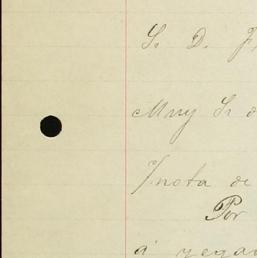 S. D. F
Muy S. d
Nota de
Por
á regar